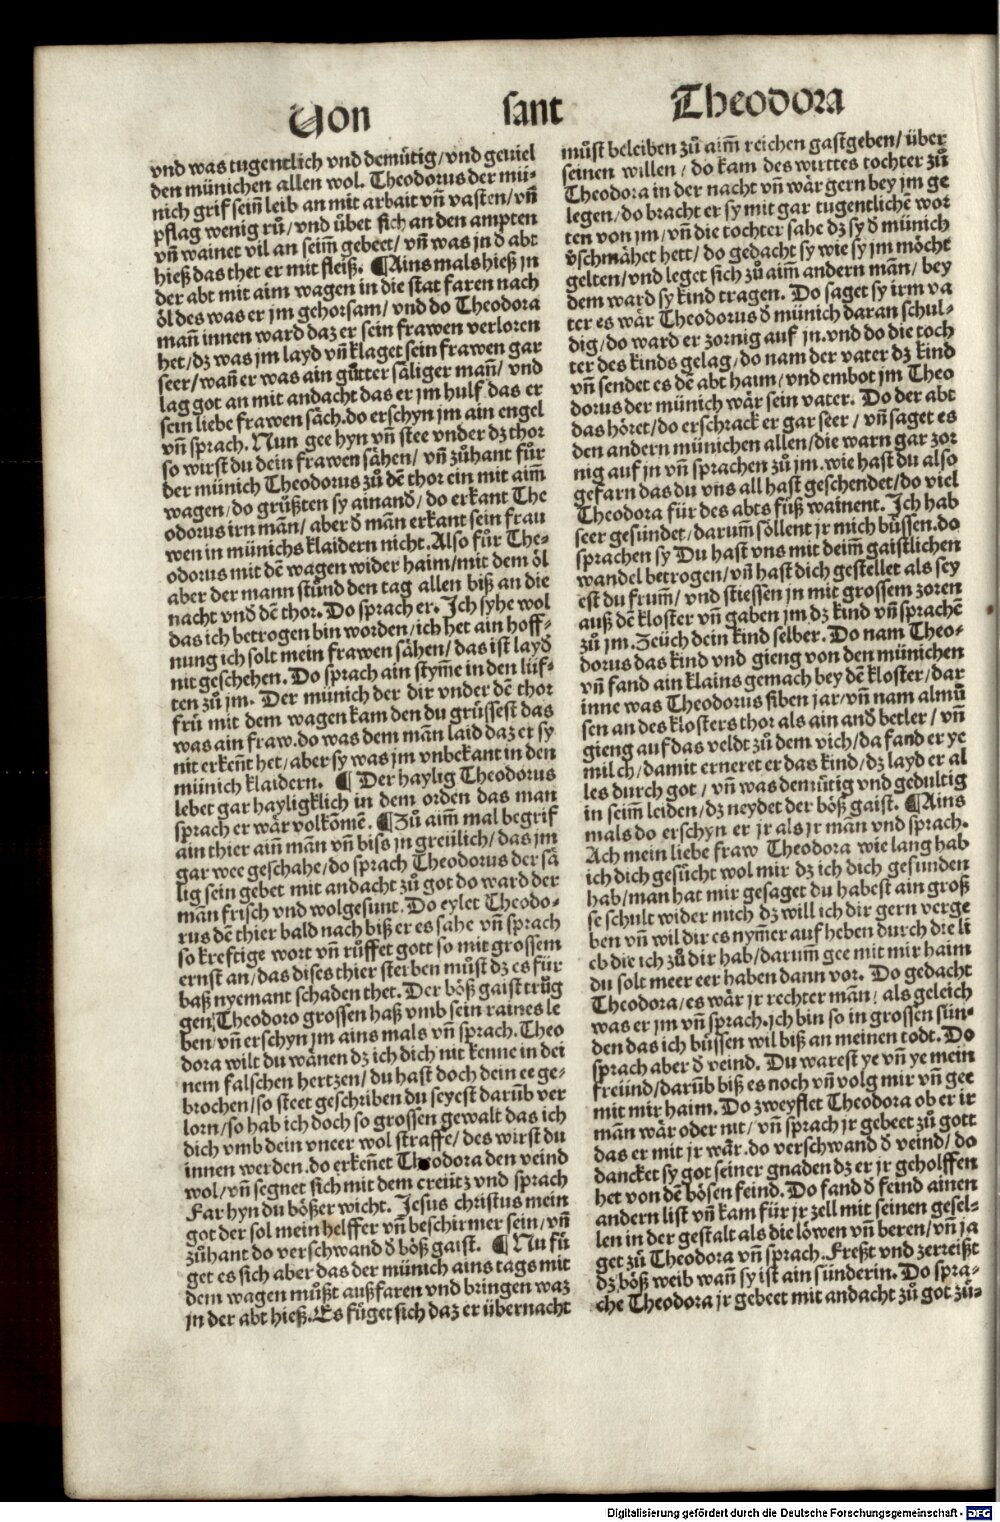 Von sant Theodora
vnd was tugentlich vnd demütig/vnd geuiel
den münichen allen wol. Theodorus der mü-
nich grif sein̄ leib an mit arbait vn̄ vasten/vn̄
pflag wenig rů/vnd übet sich an den ampten
vn̄ wainet vil an seim̄ gebeet/ vn̄ was jn d̕ abt
hieß das thet er mit fleiß. ¶Ains mals hieß jn
der abt mit aim wagen in die stat faren nach
öl des was er jm gehorsam/ vnd do Theodora
man̄ innen ward daz er sein frawen verloren
het/dz was jm layd vn̄ klaget sein frawen gar
seer/wan̄ er was ain gůtter säliger man̄/ vnd
lag got an mit andacht das er jm hulf das er
sein liebe frawen säch.do erschyn jm ain engel
vn̄ sprach. Nun gee hyn vn̄ stee vnder dz thor
so wirst du dein frawen sähen/ vn̄ zůhant fůr
der münich Theodorus zů dē thor ein mit aim̄
wagen/do grůßten sy ainand̕/do erkant The
odorus irn man̄/ aber d̕ man̄ erkant sein frau
wen in münichs klaidern nicht.Also fůr The-
odorus mit dē wagen wider haim/mit dem öl
aber der mann stůnd den tag allen biß an die
nacht vnd̕ dē thor. Do sprach er. Ich syhe wol
das ich betrogen bin worden/ich het ain hoff-
nung ich solt mein frawen sähen/ das ist layd̕
nit geschehen. Do sprach ain stym̄e in den lüf-
ten zů jm. Der münich der dir vnder dē thor
frů mit dem wagen kam den du grůssest das
was ain fraw.do was dem man̄ laid daz er sy
nit erken̄t het/aber sy was jm vnbekant in den
münich klaidern. ¶ Der haylig Theodorus
lebet gar hayligklich in dem orden das man
sprach er wär volkōmē. ¶Zů aim̄ mal begrif
ain thier ain̄ man̄ vn̄ biss jn greülich/das jm
gar wee geschahe/do sprach Theodorus der sä
lig sein gebet mit andacht zů got do ward der
man frisch vnd wolgesunt. Do eylet Theodo-
rus dē thier bald nach biß er es sahe vn̄ sprach
so kreftige wort vn̄ růffet gott so mit grossem
ernst an/das dises thier sterben můst dz es für
baß nyemant schaden thet. Der böß gaist trůg
gen Theodoro grossen haß vmb sein raines le
ben/vn̄ erschyn jm ains mals vn̄ sprach. Theo
dora wilt du wänen dz ich dich nit kenne in dei
nem falschen hertzen/du hast doch dein ee ge-
brochen/so steet geschriben du seyest darūb ver
lorn/so hab ich doch so grossen gewalt das ich
dich vmb dein vneer wol straffe/des wirst du
innen werden.do erken̄et Theodora den veind
wol/vn̄ segnet sich mit dem creütz vnd sprach
Far hyn du bößer wicht. Jesus christus mein
got der sol mein helffer vn̄ beschirmer sein/vn̄
zůhant do verschwand d̕ böß gaist. ¶ Nu fů
get es sich aber das der münich ains tags mit
dem wagen můßt außfaren vnd bringen waz
jn der abt hieß.Es fůget sich daz er übernacht
můst beleiben zů aim̄ reichen gastgeben/ über
seinen willen / do kam des wirttes tochter zů
Theodora in der nacht vn̄ wär gern bey jm ge
legen/do bracht er sy mit gar tugentlichē wor
ten von jm/vn̄ die tochter sahe dz sy d̕ münich
v̕schmähet hett/ do gedacht sy wie sy jm möcht
gelten/vnd leget sich zů aim̄ andern man̄/ bey
dem ward sy kind tragen. Do saget sy irm va
ter es wär Theodorus d̕ münich daran schul-
dig/do ward er zornig auf jn.vnd do die toch
ter des kinds gelag/do nam der vater dz kind
vn̄ sendet es dē abt haim/vnd embot jm Theo
dorus der münich wär sein vater. Do der abt
das höret/do erschrack er gar seer/ vn̄ saget es
den andern münichen allen/die warn gar zor
nig auf jn vn̄ sprachen zů jm.wie hast du also
gefarn das du vns all hast geschendet/do viel
Theodora für des abts fůß wainent. Ich hab
seer gesündet/darum̄ söllent jr mich büssen.do
sprachen sy Du hast vns mit deim̄ gaistlichen
wandel betrogen/vn̄ hast dich gestellet als sey
est du frum̄/ vnd stiessen jn mit grossem zoren
auß dē kloster vn̄ gaben jm dz kind vn̄ sprachē
zů jm. Zeüch dein kind selber. Do nam Theo-
dorus das kind vnd gieng von den münichen
vn̄ fand ain klains gemach bey dē kloster/dar
inne was Theodorus siben jar/vn̄ nam almů
sen an des klosters thor als ain and̕ betler/ vn̄
gieng auf das veldt zů dem vich/da fand er ye
milch/damit erneret er das kind/dz layd er al
les durch got/ vn̄ was demütig vnd gedultig
in seim̄ leiden/dz neydet der böß gaist. ¶Ains
mals do erschyn er jr als jr man̄ vnd sprach.
Ach mein liebe fraw Theodora wie lang hab
ich dich gesůcht wol mir dz ich dich gefunden
hab/man hat mir gesaget du habest ain groß
se schult wider mich dz will ich dir gern verge
ben vn̄ wil dir es nym̄er auf heben durch die li
eb die ich zů dir hab/darum̄ gee mit mir haim
du solt meer eer haben dann vor. Do gedacht
Theodora/es wär jr rechter man̄/ als geleich
was er jm vn̄ sprach.ich bin so in grossen sün-
den das ich büssen wil biß an meinen todt. Do
sprach aber d̕ veind. Du warest ye vn̄ ye mein
freünd/darūb biß es noch vn̄ volg mir vn̄ gee
mit mir haim. Do zweyflet Theodora ob er ir
man̄ wär oder nit/ vn̄ sprach jr gebeet zů gott
das er mit jr wär.do verschwand d̕ veind/ do
dancket sy got seiner gnaden dz er jr geholffen
het von dē bösen feind. Do fand d̕ feind ainen
andern list vn̄ kam für jr zell mit seinen gesel-
len in der gestalt als die löwen vn̄ beren/vn̄ ja
get zů Theodora vn̄ sprach.Freßt vnd zerreißt
dz böß weib wan̄ sy ist ain sünderin. Do spra-
che Theodora jr gebeet mit andacht zů got zů-
Digitalisierung gefördert durch die Deutsche Forschungsgemeinschaft - DFG